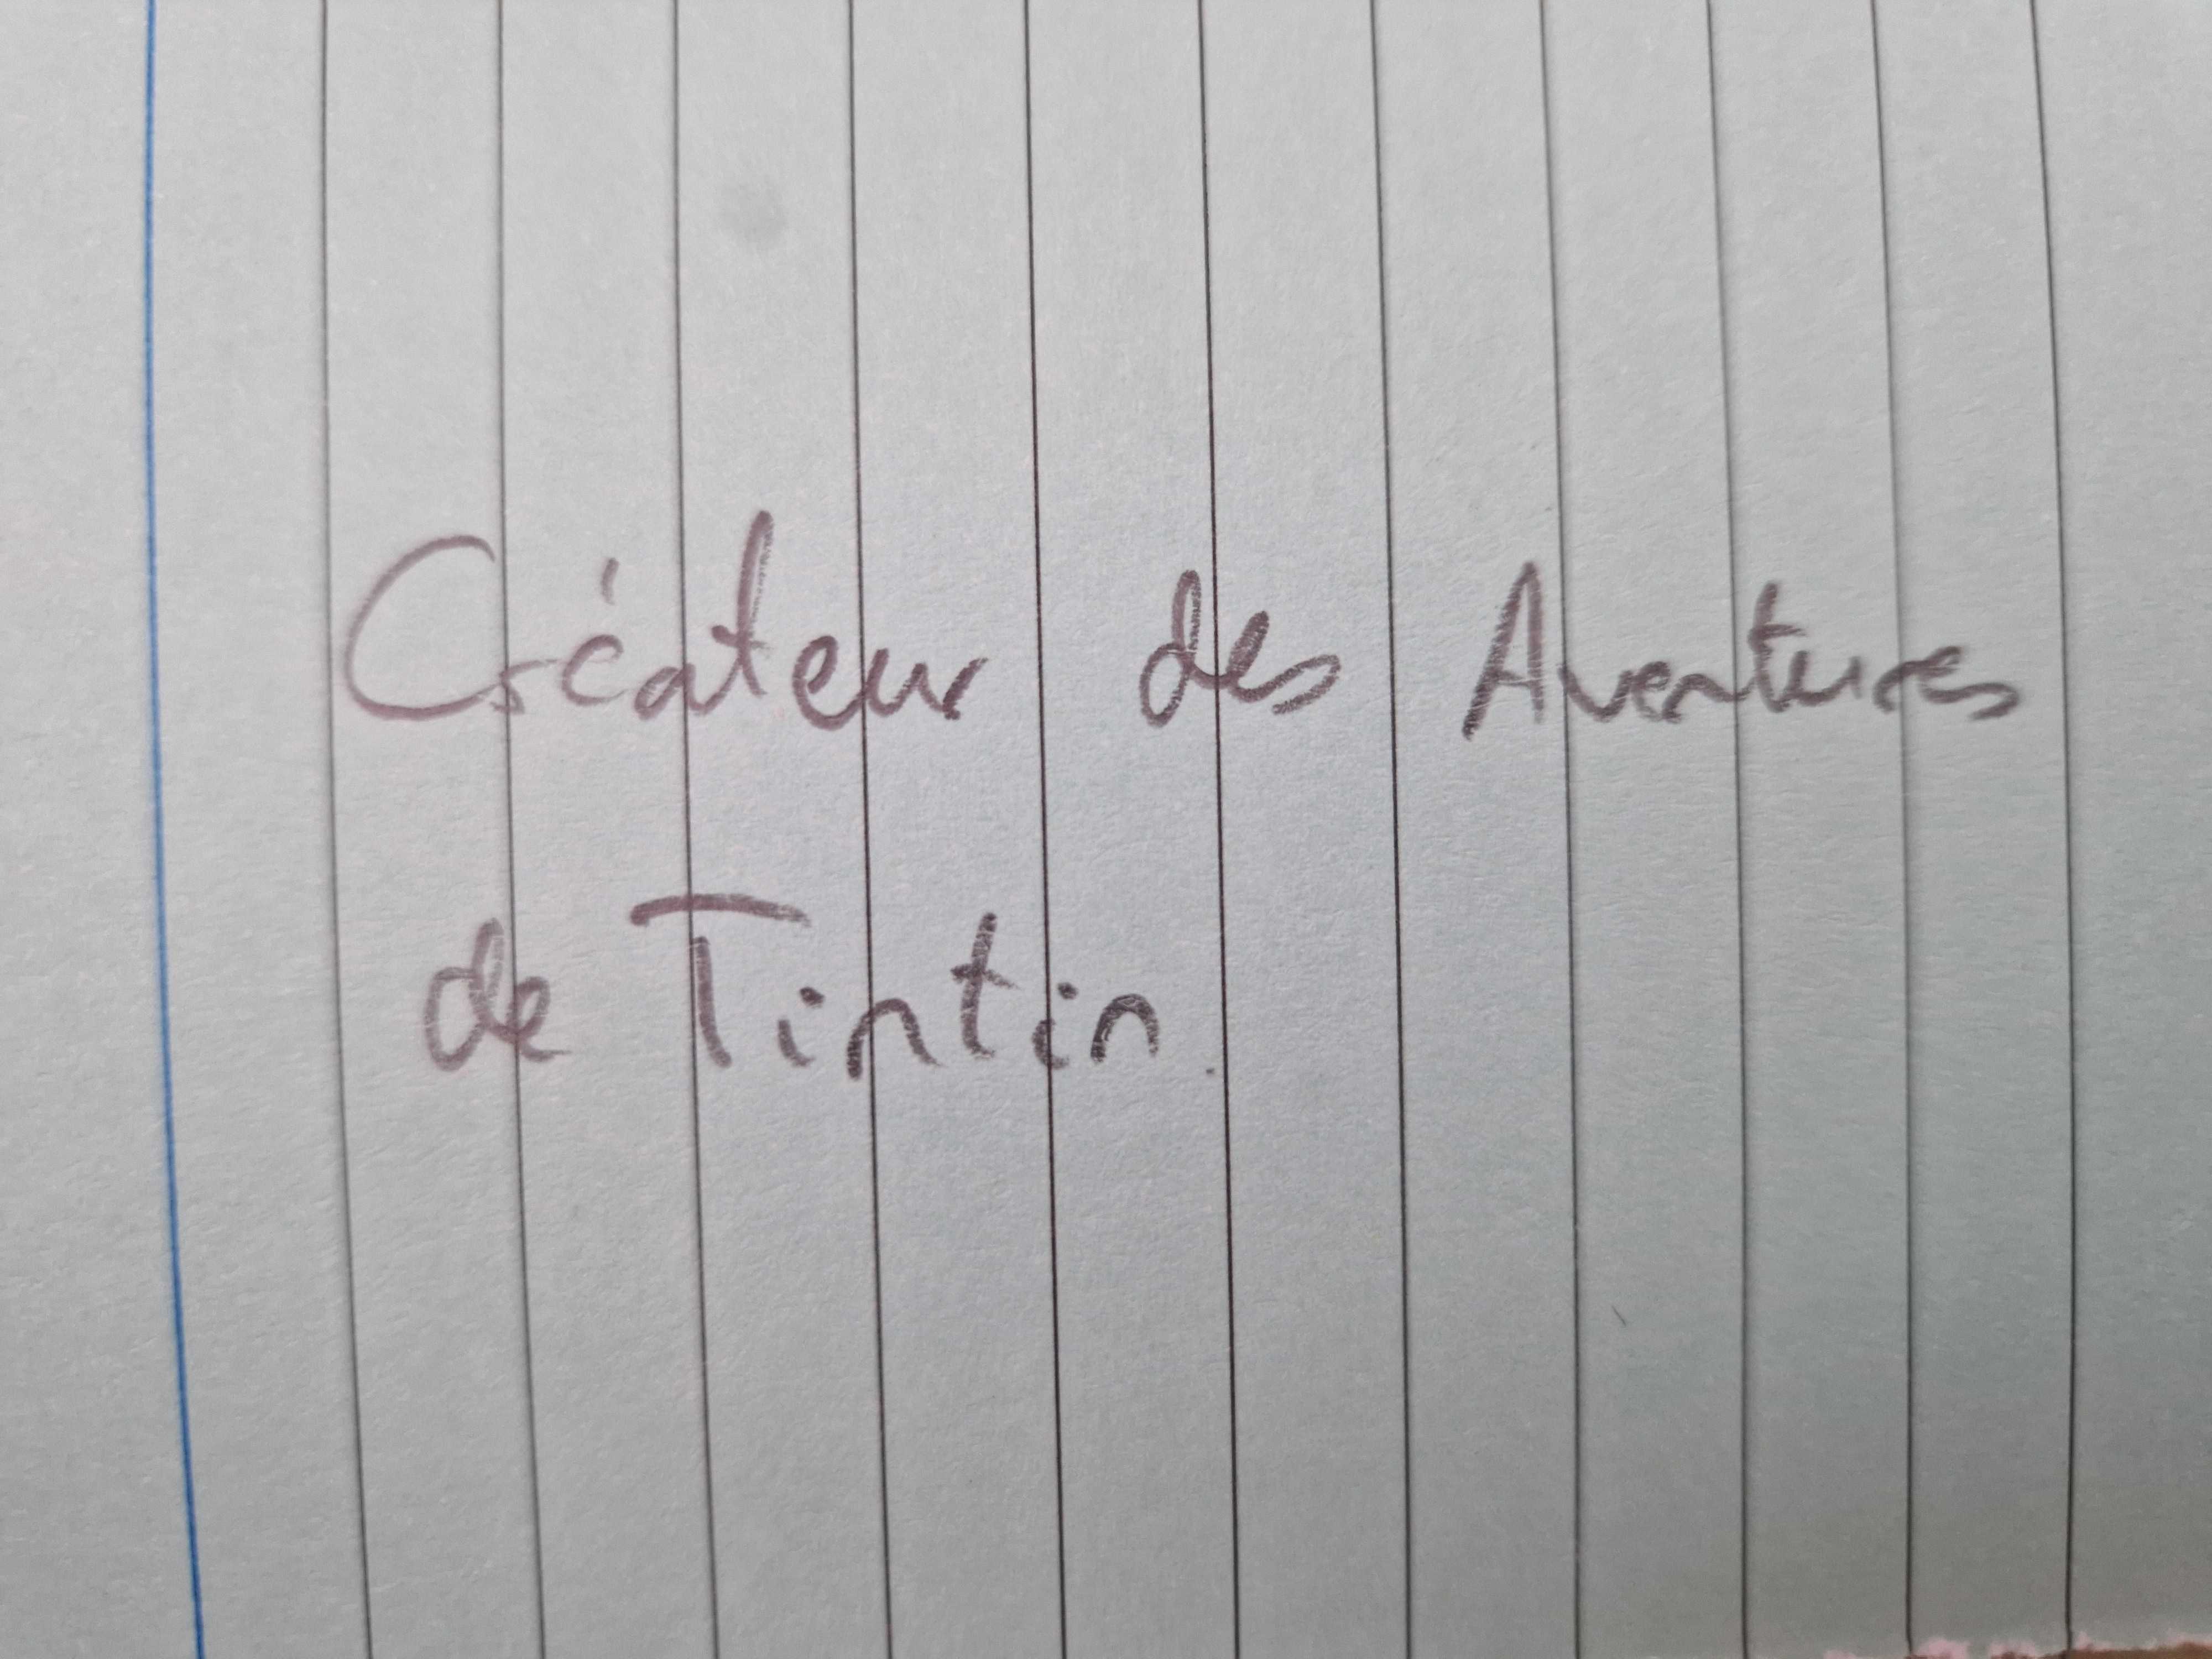 Créateur des Aventures
de Tintin.